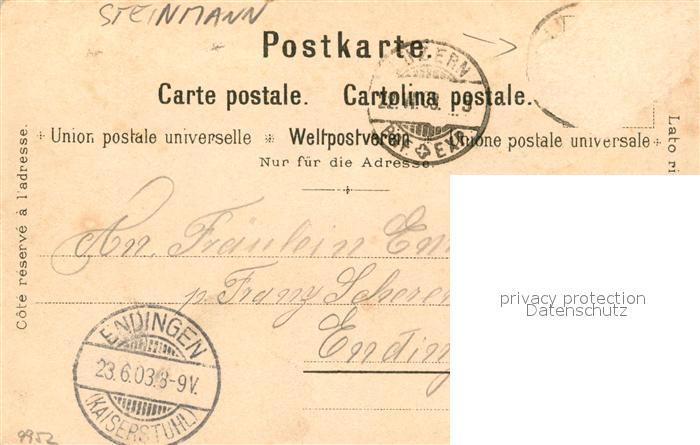 STEINMANN
Postkarte.
Carte postale. Cartolina postale.
Union postale universelle * Weltpostverein * Unione postale universale
Nur für die Adresse.
Côté réservé à l'adresse.
Lato ri
LUZERN
BRF. EXP.
An Fräulein Em
p. Franz Scherer
Endin
privacy protection
Datenschutz
ENDINGEN
23.6.03.8-9V.
(KAISERSTUHL)
9952